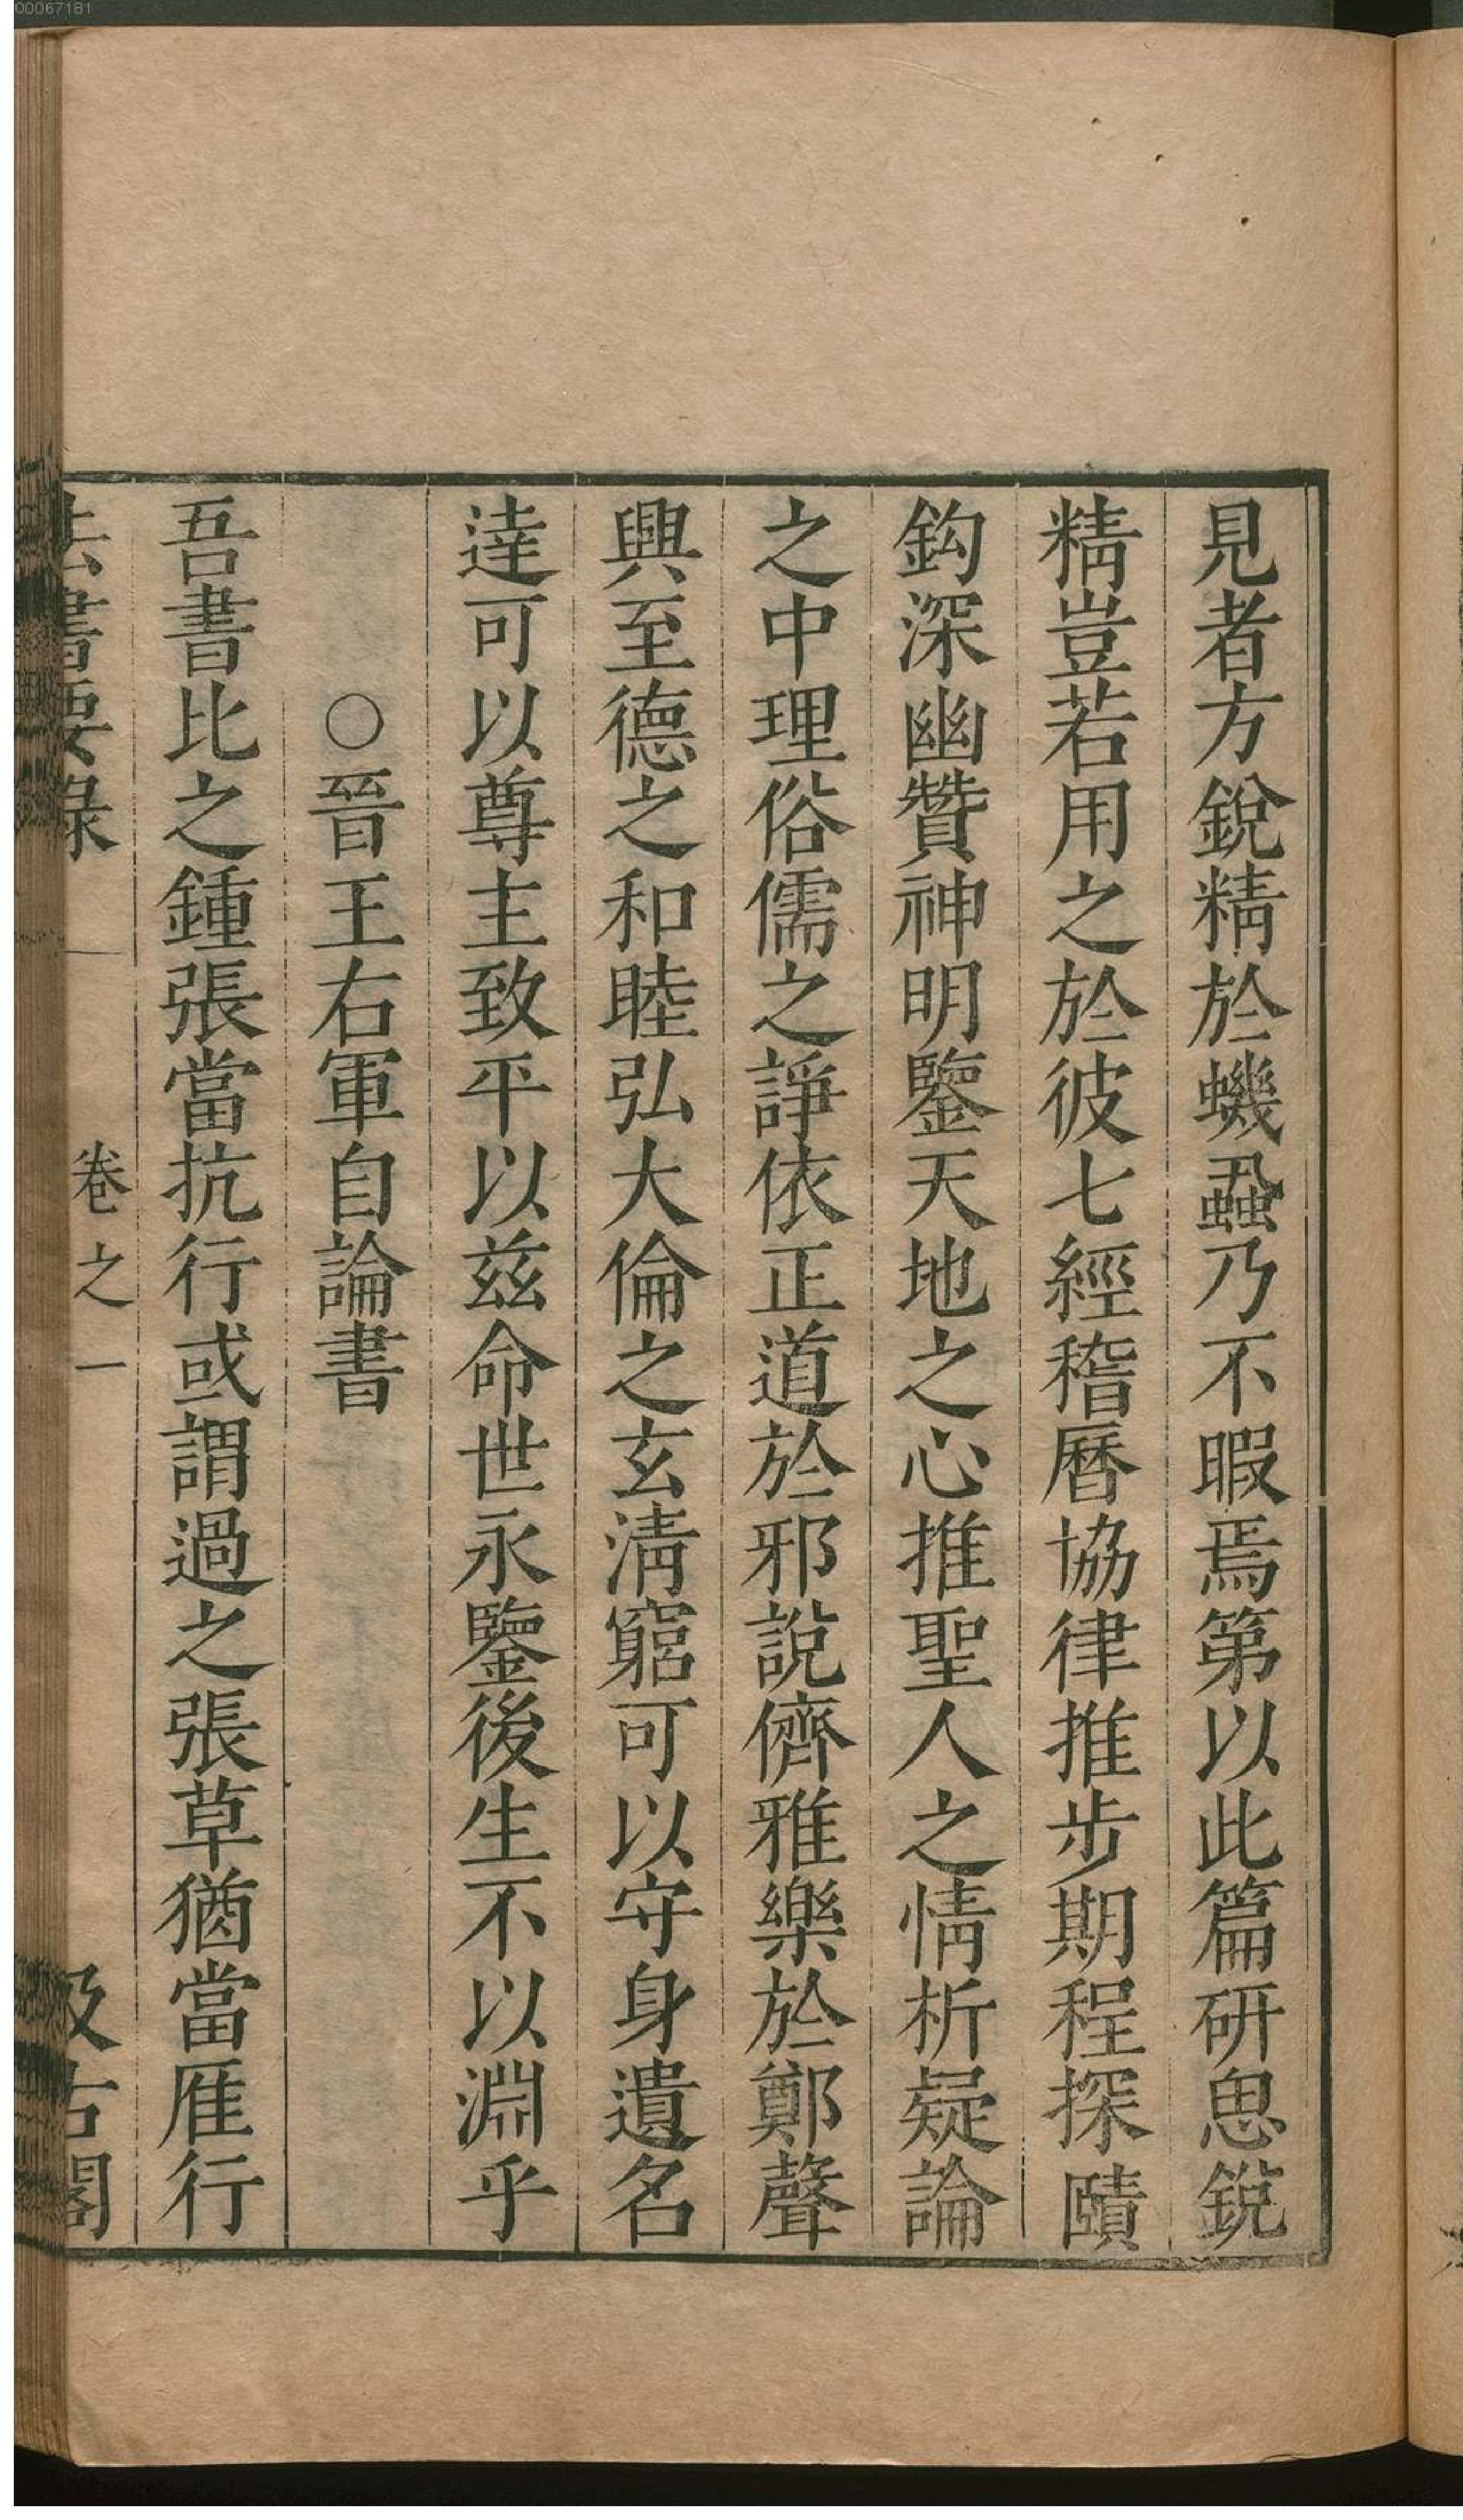 00067181
見者方銳精於蟣蝨乃不暇焉第以此篇研思銳
精豈若用之於彼七經稽曆協律推步期程探賾
鈎深幽贊神明鑒天地之心推聖人之情析疑論
之中理俗儒之諍依正道於邪說儕雅樂於鄭聲
興至德之和睦弘大倫之玄淸窮可以守身遺名
達可以尊主致平以兹命世永鑒後生不以淵乎
○晉王右軍自論書
吾書比之鍾張當抗行或謂過之張草猶當雁行
法書要錄 卷之一 汲古閣